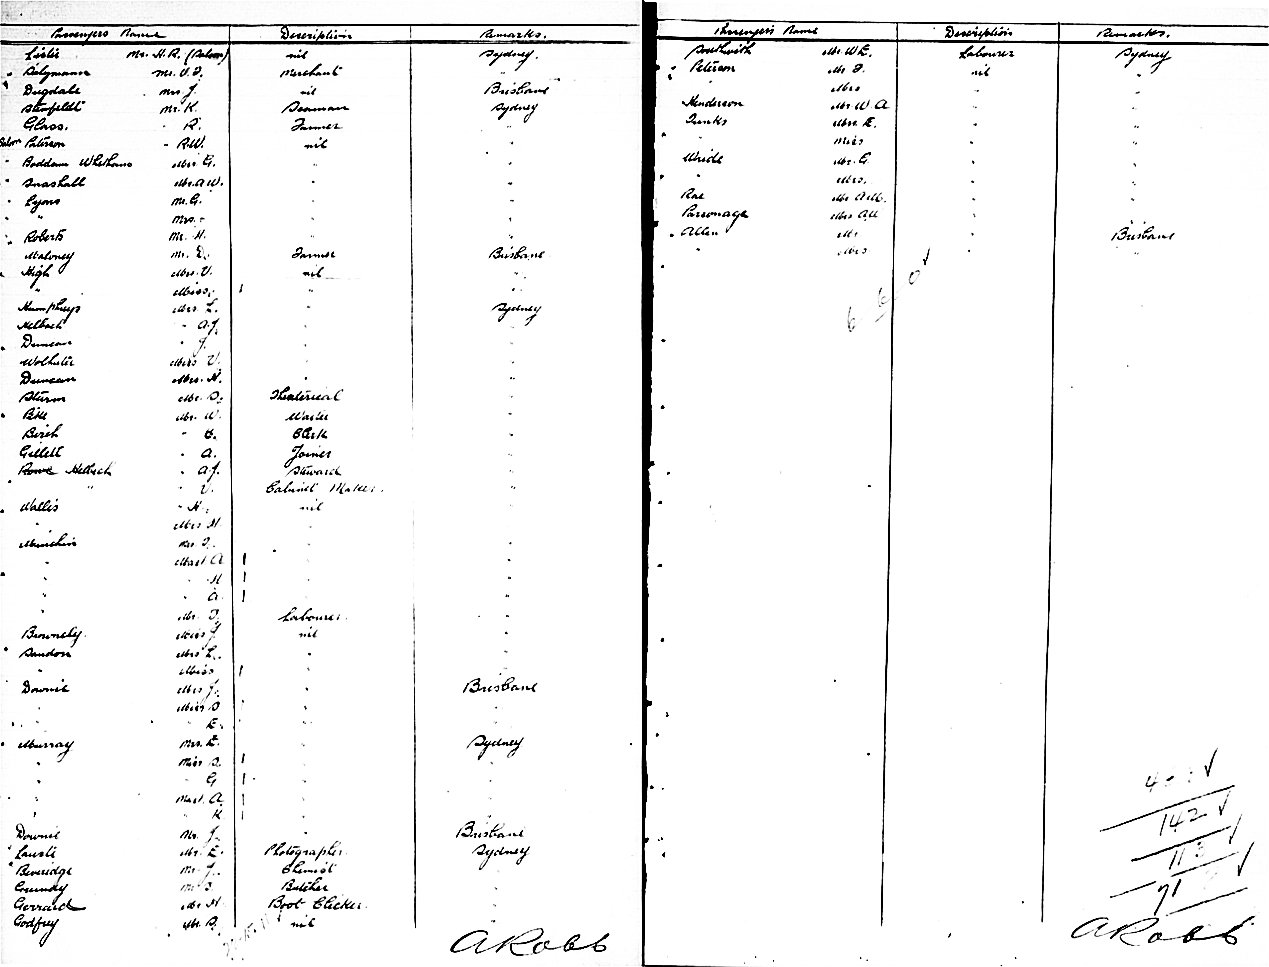 Passengers Name Description Remarks.
Leslie Mr. H.R. (Saloon) nil Sydney.
Salzmann Mr. V.J. Merchant "
Dugdale Mrs J. nil Brisbane
Mr. K. Seaman Sydney
Glass. " R. Farmer "
Saloon Paterson " R.W. nil "
" Boddam Whetham Mrs G. " "
" Snashall Mr. A.W. " "
" Lyons Mr. G. " "
" " Mrs. - " "
Roberts Mr. H. " "
Maloney Mr. D. Farmer Brisbane
High Mrs. V. nil "
" Miss. 1 " "
Humphreys Mrs L. " Sydney
Helbach " A.J. " "
Duncan " J. " "
Wolhuter Miss V. " "
Duncan Mrs. H. " "
Sturm Mr. S. Theatrical "
Pike Mr. W. Waiter "
Birch " C. Clerk "
Gillett " A. Joiner "
Helbach " A.J. Steward "
" " V. Cabinet Maker. "
Wallis " H. nil "
" Mrs H " "
Minchin Mrs J. " "
" Mast A 1 " "
" " H 1 " "
" " A 1 " "
" Mr. J. Labourer. "
Brownley. Miss J. nil "
Sandon Mrs L. " "
" Miss 1 " "
Downie Mrs J. " Brisbane
" Miss D " "
" " E. " "
Murray Mrs. E. " Sydney
" Miss D. 1 " "
" " G 1 " "
" Mast. A. 1 " "
" " K 1 " "
Downie Mr. J. " Brisbane
Lauste Mr. E. Photographer. Sydney
" Beveridge Mr. J. Chemist "
Mr J. Butcher "
Gerrard Mr. H Boot Clicker. "
Godfrey Mr. S. nil "
A Robb
Passengers Name Description Remarks.
Mr. W.E. Labourer Sydney
Peterson Mr J. nil "
" Mrs " "
Henderson Mr. W. A " "
Junks Mrs. E. " "
" Miss " "
Wride Mr. G " "
" Mrs. " "
Rae " "
Parsonage " "
Allen Mr " Brisbane
" Mrs " "
142
113
71
A Robb